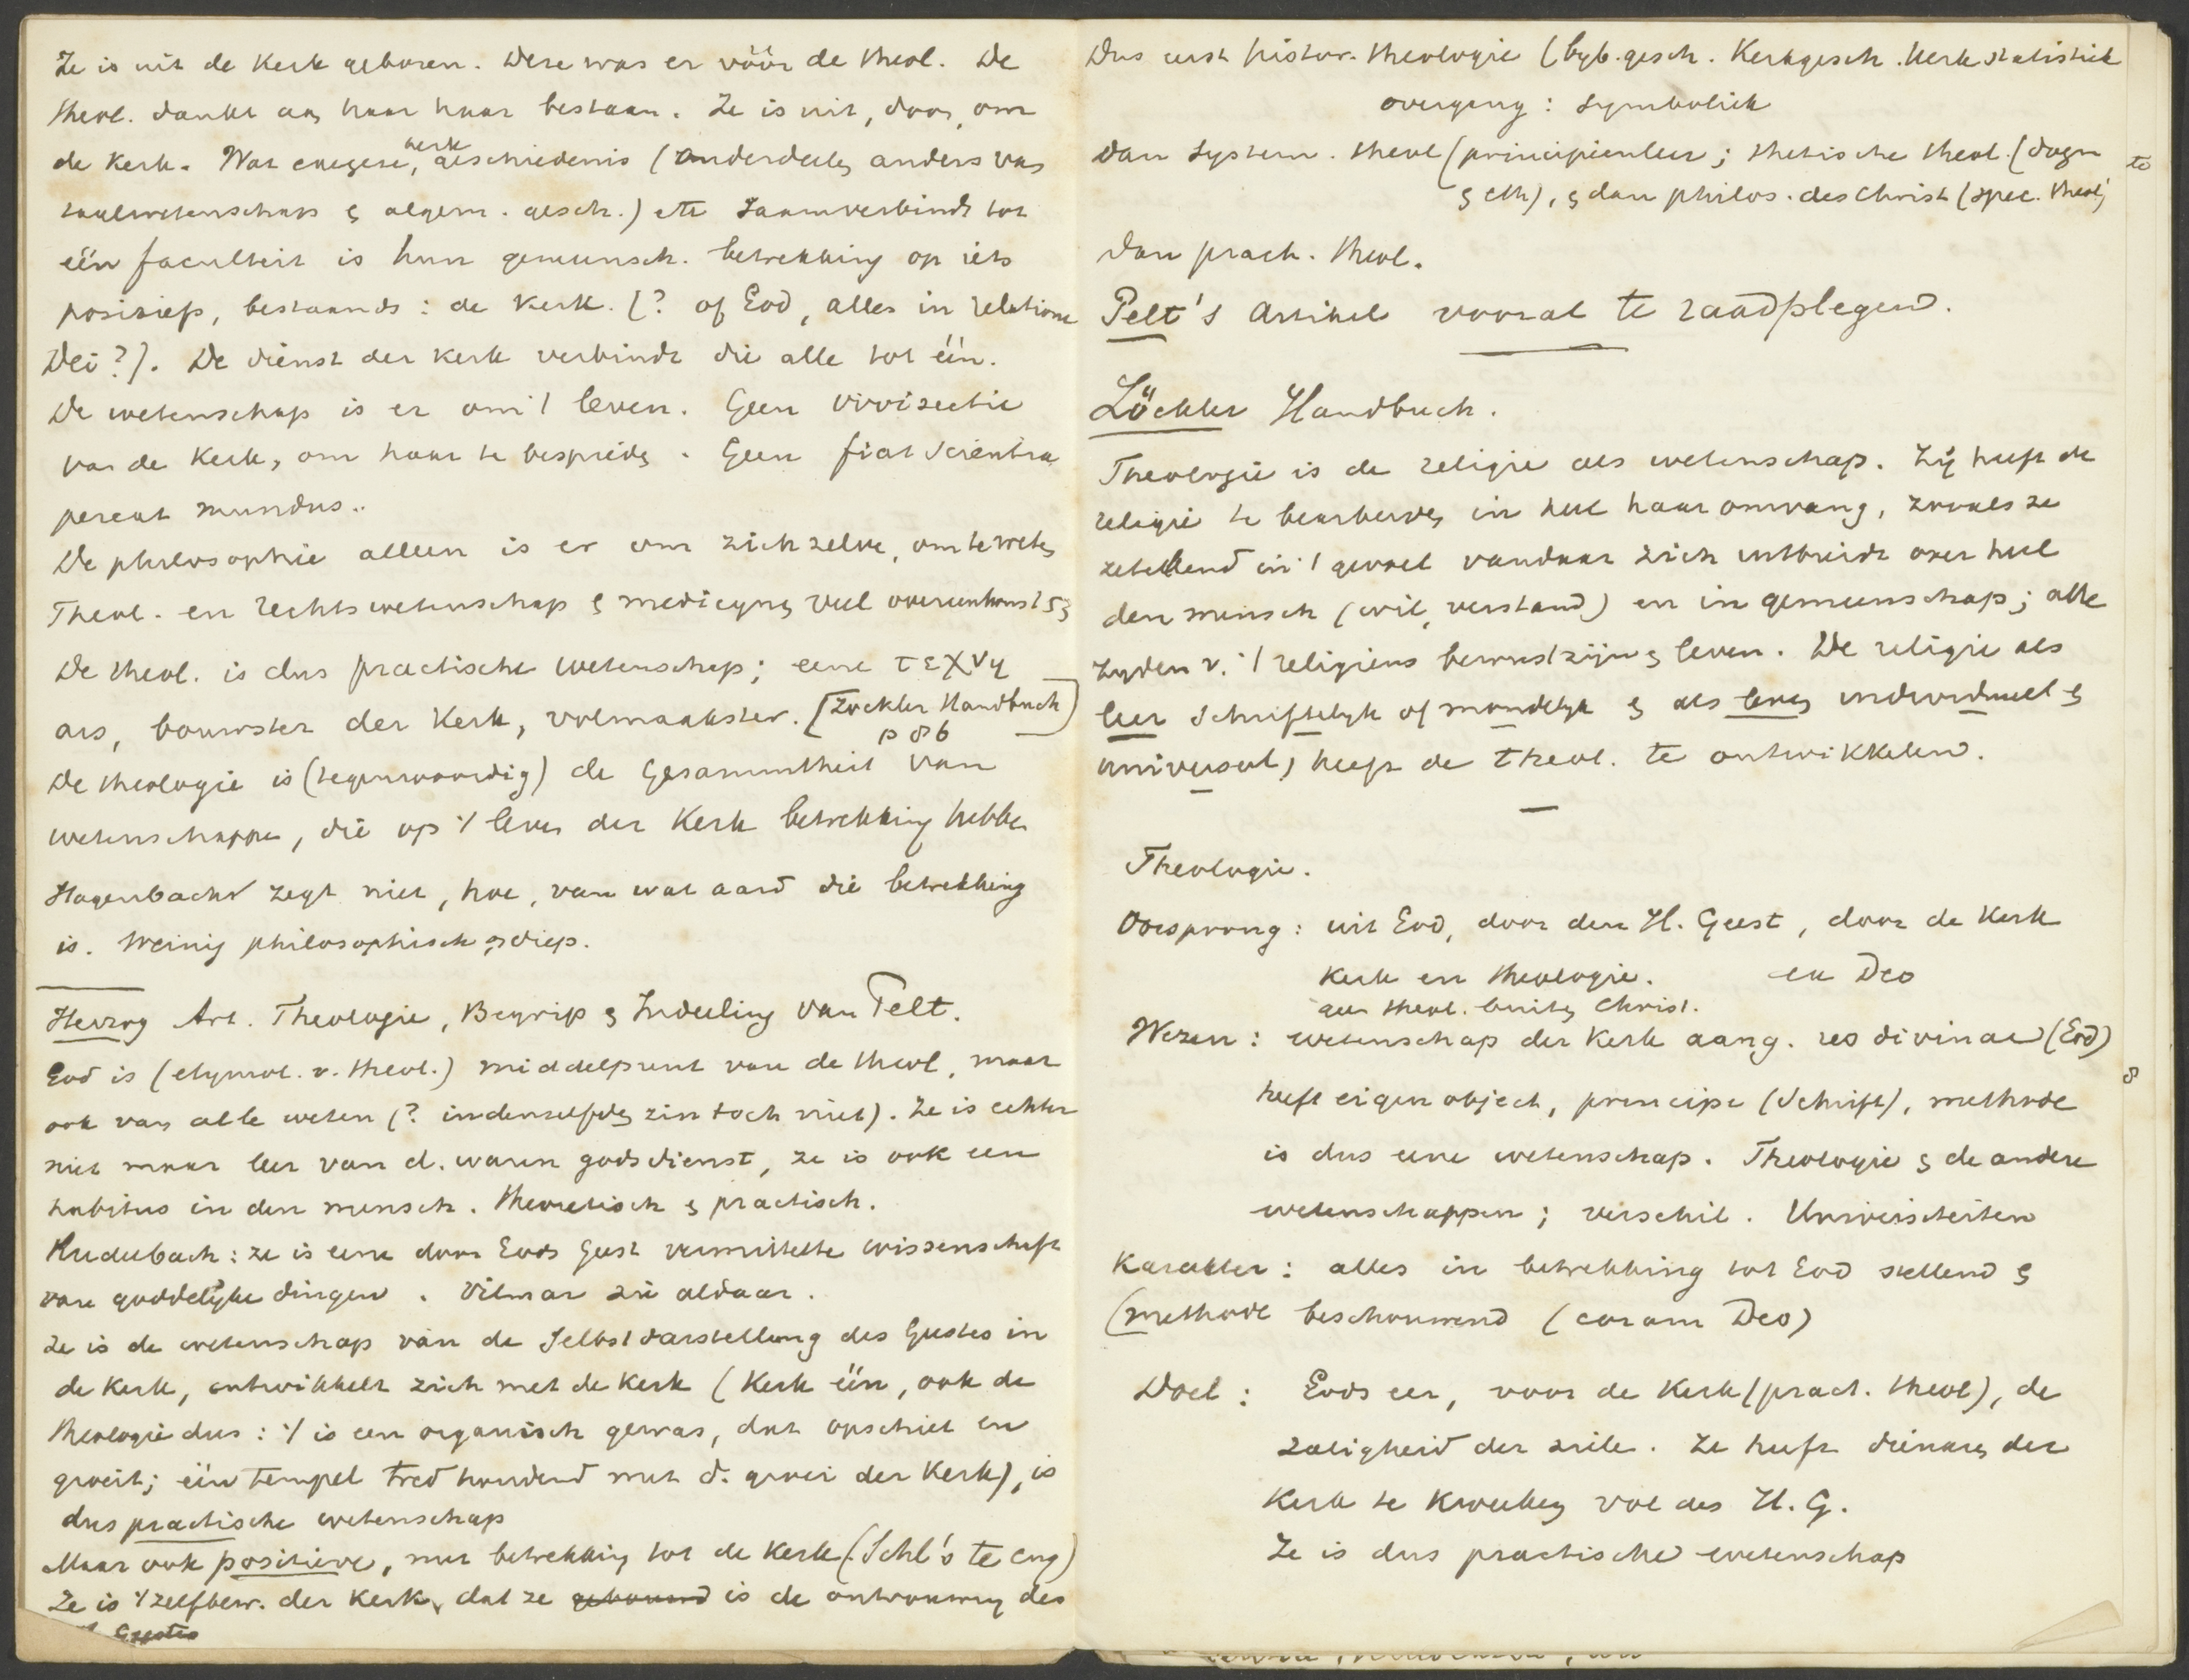 Ze is uit de Kerk geboren. Deze was er vóór de theol. De
theol. dankt aan haar haar bestaan. Ze is uit, door, om
de Kerk. Wat exegese, kerkgeschiedenis (onderdeelen anders van
taalwetenschap & algem. gesch.) etc zaamverbindt tot
één faculteit is hun gemeensch. betrekking op iets
positiefs, bestaands: de Kerk. (? of God, alles in relatione
Dei?). De dienst der Kerk verbindt die alle tot één.
De wetenschap is er om 't leven. Geen vivisectie
van de Kerk, om haar te bespieden. Geen fiat scientia
pereat mundus..
De philosophie alleen is er om zichzelve, om te weten
Theol. en rechtswetenschap & medicynen veel overeenkomst
De theol. is dus practische wetenschap; eene τεχνη
ars, bouwster der Kerk, volmaakster. [Zöckler Handbuch]
p 86
De theologie is (tegenwoordig) de Gesammtheit van
wetenschappen, die op 't leven der Kerk betrekking hebben
Hagenbach zegt niet, hoe, van wat aard die betrekking
is. Weinig philosophisch & diep.
Herzog Art. Theologie, Begrip & Indeeling van Pelt.
God is (etymol. v. theol.) middelpunt van de theol, maar
ook van alle weten (? in denzelfden zin toch niet). Ze is echter
niet maar leer van d. waren godsdienst, ze is ook een
habitus in den mensch. theoretisch & practisch.
Rudelbach: ze is eene door Gods Geest vermittelte Wissenschaft
van goddelijke dingen. Vilmar zie aldaar.
Ze is de wetenschap van de Selbstdarstellung des Geestes in
de Kerk, ontwikkelt zich met de Kerk (Kerk één, ook de
theologie dus: 't is een organisch gewas, dat opschiet en
groeit; één tempel tred houdend met d. groei der Kerk), is
dus practische wetenschap
Maar ook positieve, met betrekking tot de Kerk (Schl's te eng)
Ze is 't zelfbew. der Kerk, dat ze gebouwd is de ontvouwing des
Geestes
Dus eerst histor. theologie (byb. gesch. Kerkgesch. Kerkstatistiek
overgang: symboliek
Dan System. theol (principienleer; thetische theol. (dogm
& eth), & dan philos. des Christ (spec. theol)
Dan pract. theol.
Pelt's Artikel vooral te raadplegen.
Zöckler Handbuch.
Theologie is de religie als wetenschap. Zij heeft de
religie te bearbeiden in heel haar omvang, zooals ze
zetelend in 't gevoel vandaar zich uitbreidt over heel
den mensch (wil, verstand) en in gemeenschap; alle
zyden v. 't religieus bewustzijn & leven. De religie als
leer schriftelyk of mondelyk & als leven individueel &
universeel, heeft de theol. te ontwikkelen.
Theologie.
Oorsprong: uit God, door den H. Geest, door de Kerk
Kerk en theologie. ex Deo
geen theol. buiten Christ.
Wezen: wetenschap der Kerk aang. res divinae (God)
heeft eigen object, principe (Schrift), methode
is dus eene wetenschap. Theologie & de andere
wetenschappen; verschil. Universiteiten
Karakter: alles in betrekking tot God stellend &
(methode beschouwend (coram Deo)
Doel: Gods eer, voor de Kerk (pract. theol), de
zaligheid der ziele. Ze heeft dienaren der
Kerk te kweeken vol des H. G.
Ze is dus practische wetenschap